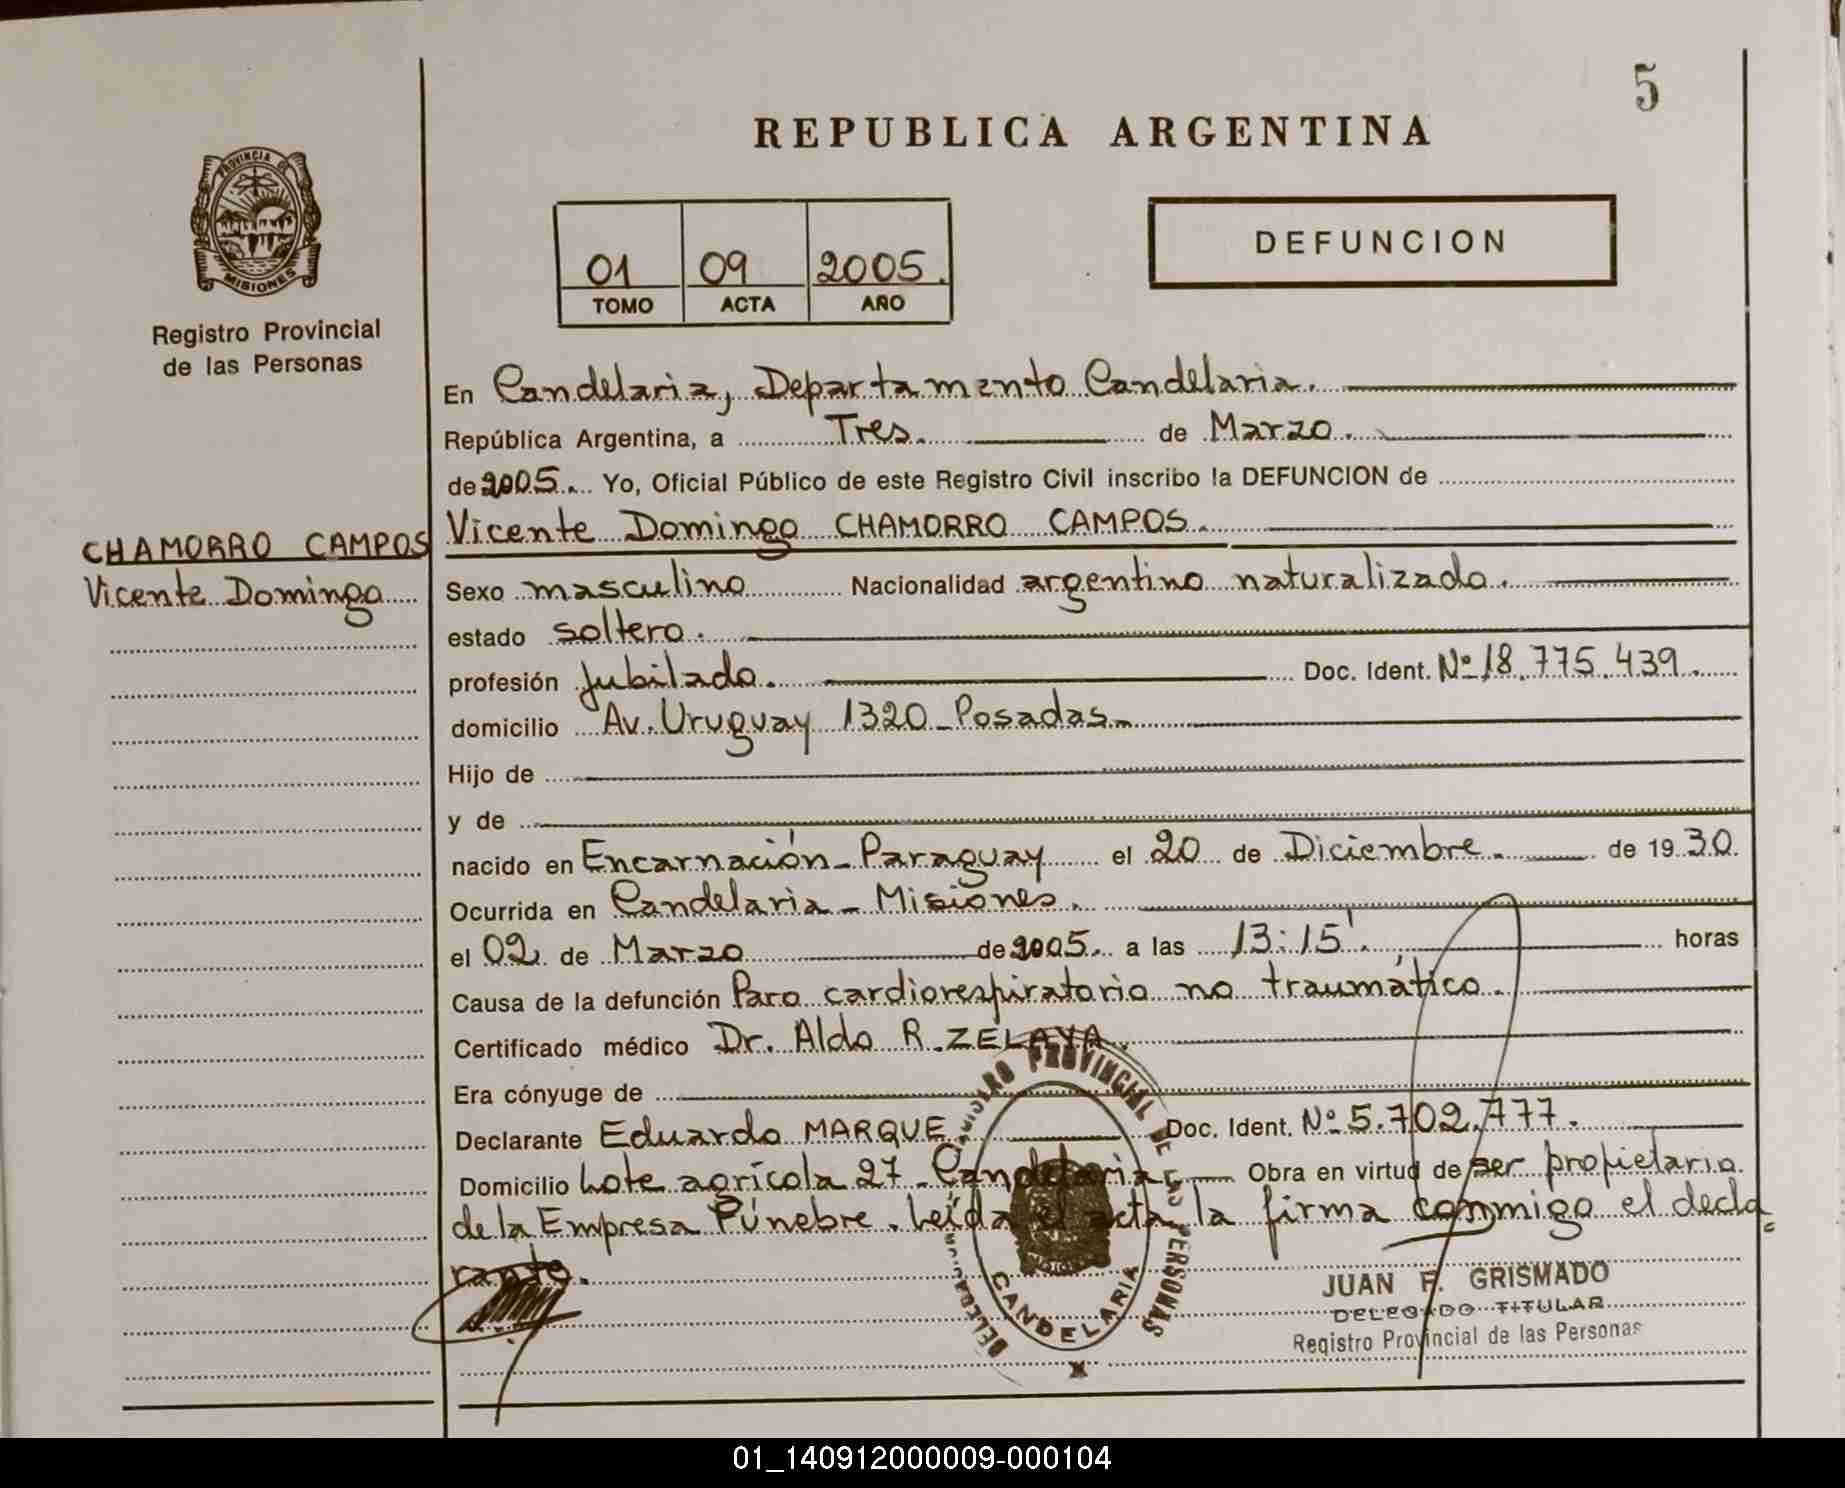 5
REPUBLICA ARGENTINA
PROVINCIA DE
MISIONES
Registro Provincial
de las Personas
01 09 2005.
TOMO ACTA AÑO
DEFUNCION
En Candelaria, Departamento Candelaria.
República Argentina, a Tres. de Marzo.
de 2005. Yo, Oficial Público de este Registro Civil inscribo la DEFUNCION de
CHAMORRO CAMPOS
Vicente Domingo
Vicente Domingo CHAMORRO CAMPOS.
Sexo masculino Nacionalidad argentino naturalizado.
estado soltero.
profesión Jubilado. Doc. Ident. Nº 18.775.439.
domicilio Av. Uruguay 1320 - Posadas -
Hijo de
y de
nacido en Encarnación - Paraguay el 20 de Diciembre. de 1930.
Ocurrida en Candelaria - Misiones.
el 02 de Marzo de 2005. a las 13:15'. horas
Causa de la defunción Paro cardiorespiratorio no traumático.
Certificado médico Dr. Aldo R. ZELAYA.
Era cónyuge de
Declarante Eduardo MARQUE Doc. Ident. Nº 5.702.777.
Domicilio Lote agrícola 27 - Candelaria Obra en virtud de ser propietario
de la Empresa Fúnebre. Leída el acta la firma conmigo el decla
rante.
REGISTRO PROVINCIAL DE LAS PERSONAS
CANDELARIA
JUAN F. GRISMADO
DELEGADO TITULAR
Registro Provincial de las Personas
01_140912000009-000104